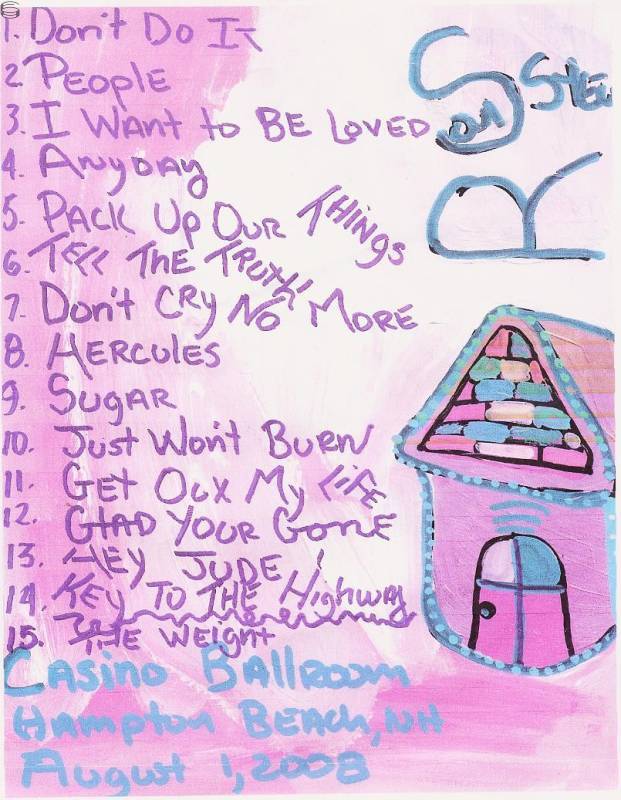 1. Don't Do It
2 People
3. I Want to BE LOVED
4. Anyday
5. PACK Up Our THINGS
6. TELL THE TRUTH
7. Don't CRY NO MORE
8. HERCULES
9. SugAR
10. Just Won't Burn
11. Get Out My LiFE
12. GLAD YOUR GONE
13. HEY JUDE
14. KEY TO THE Highway
15. THE Weight
Casino BALLROOM
HAmpton BEACH, NH
August 1, 2008